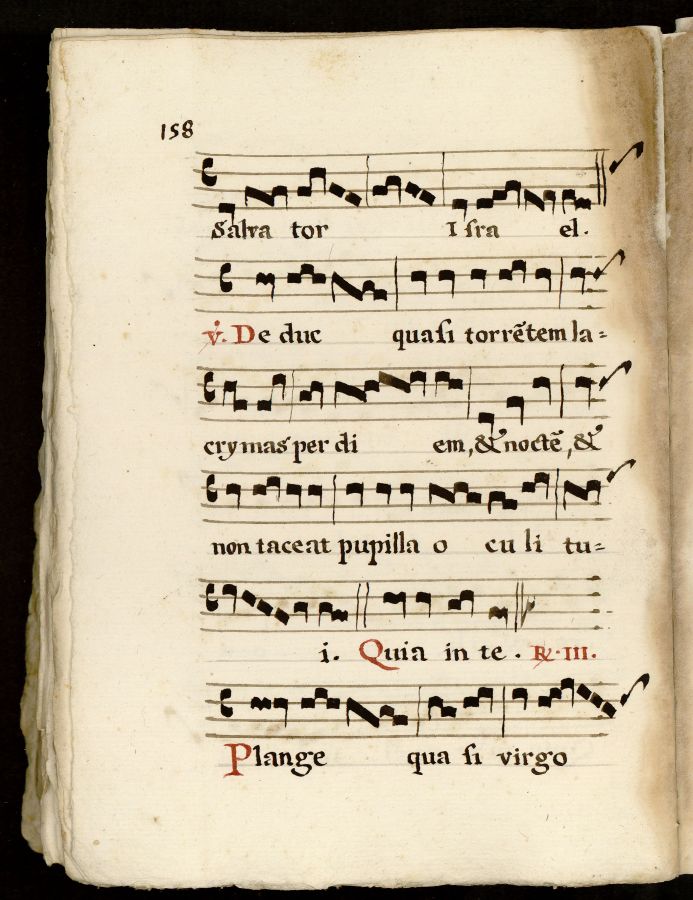 158
Salva tor Isra el.
℣. De duc quasi torrẽtem la=
crymas per di em, & noctẽ, &
non taceat pupilla o cu li tu=
i. Quia in te. ℟. III.
Plange qua si virgo